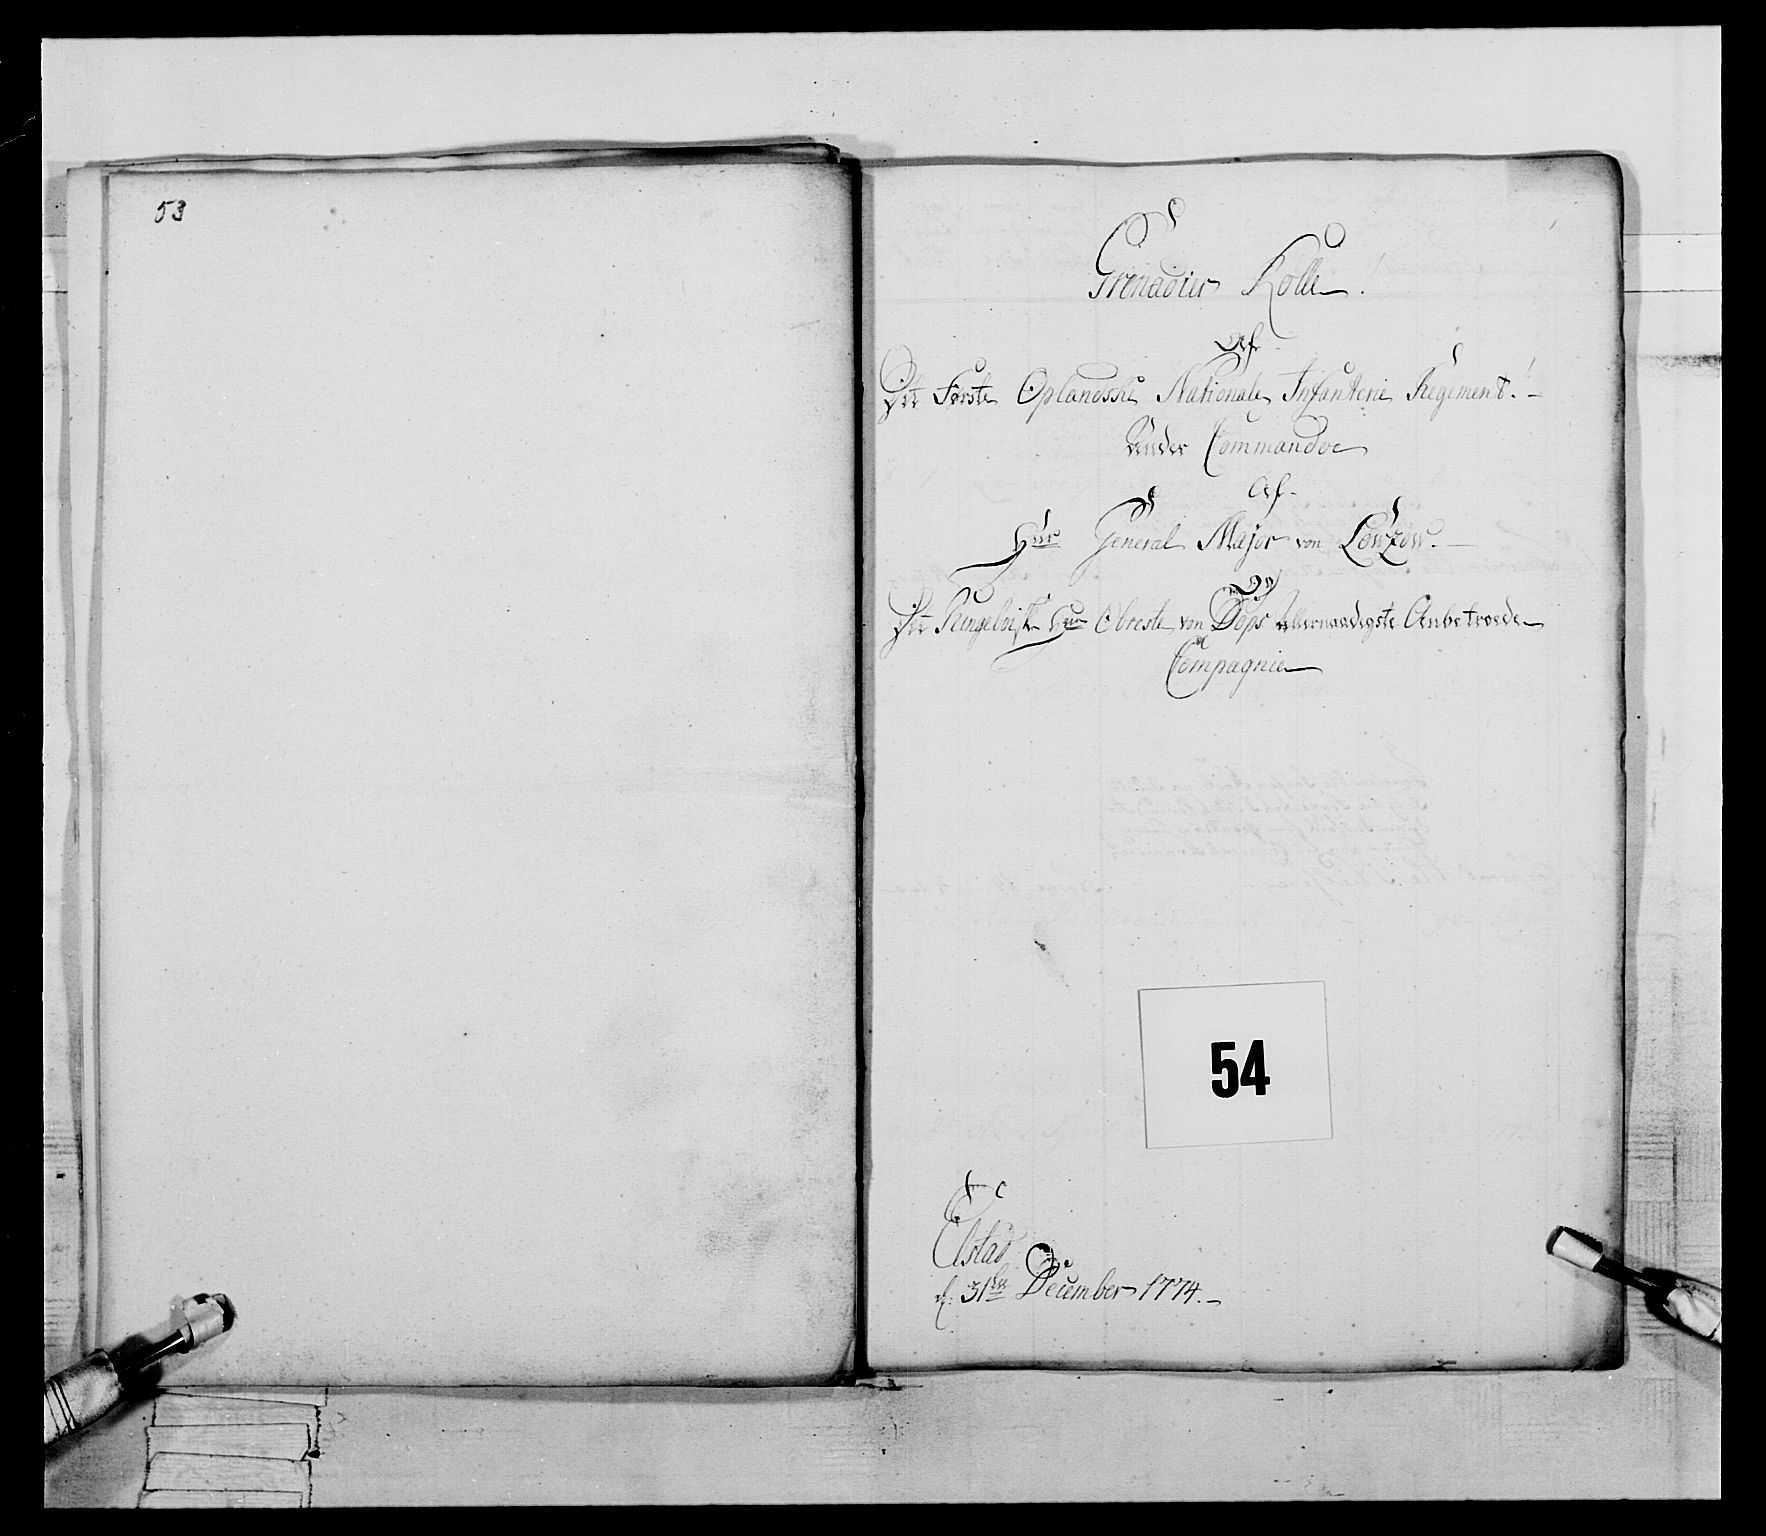 53
Grenadier Rolle.
Af
Det Første Oplandske Nationale Infanterie Regiment.
Under Commandoe
Af
Hr General Major von Lowzow.
Og
Det Ringeboiske Hr Obreste von Dops allernaadigste Anbetroede
Compagnie
54
Elstad
d. 31te December 1774.